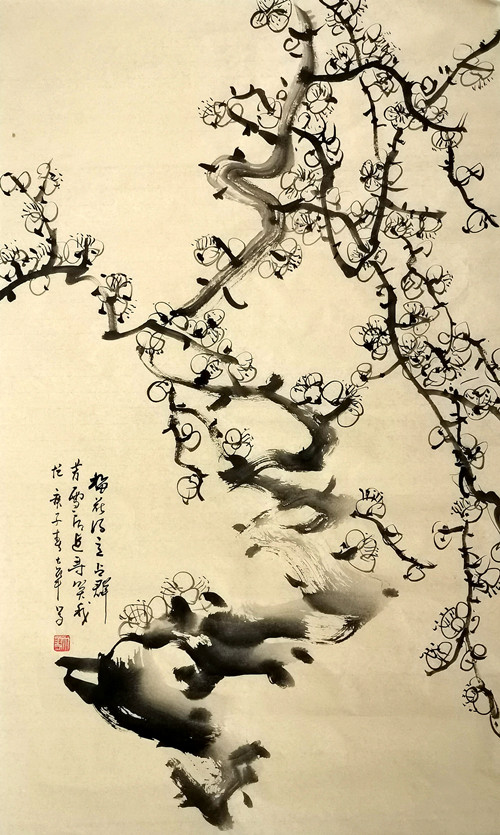 梅花得意占群
芳雪后追寻笑我
忙 庚子春 写